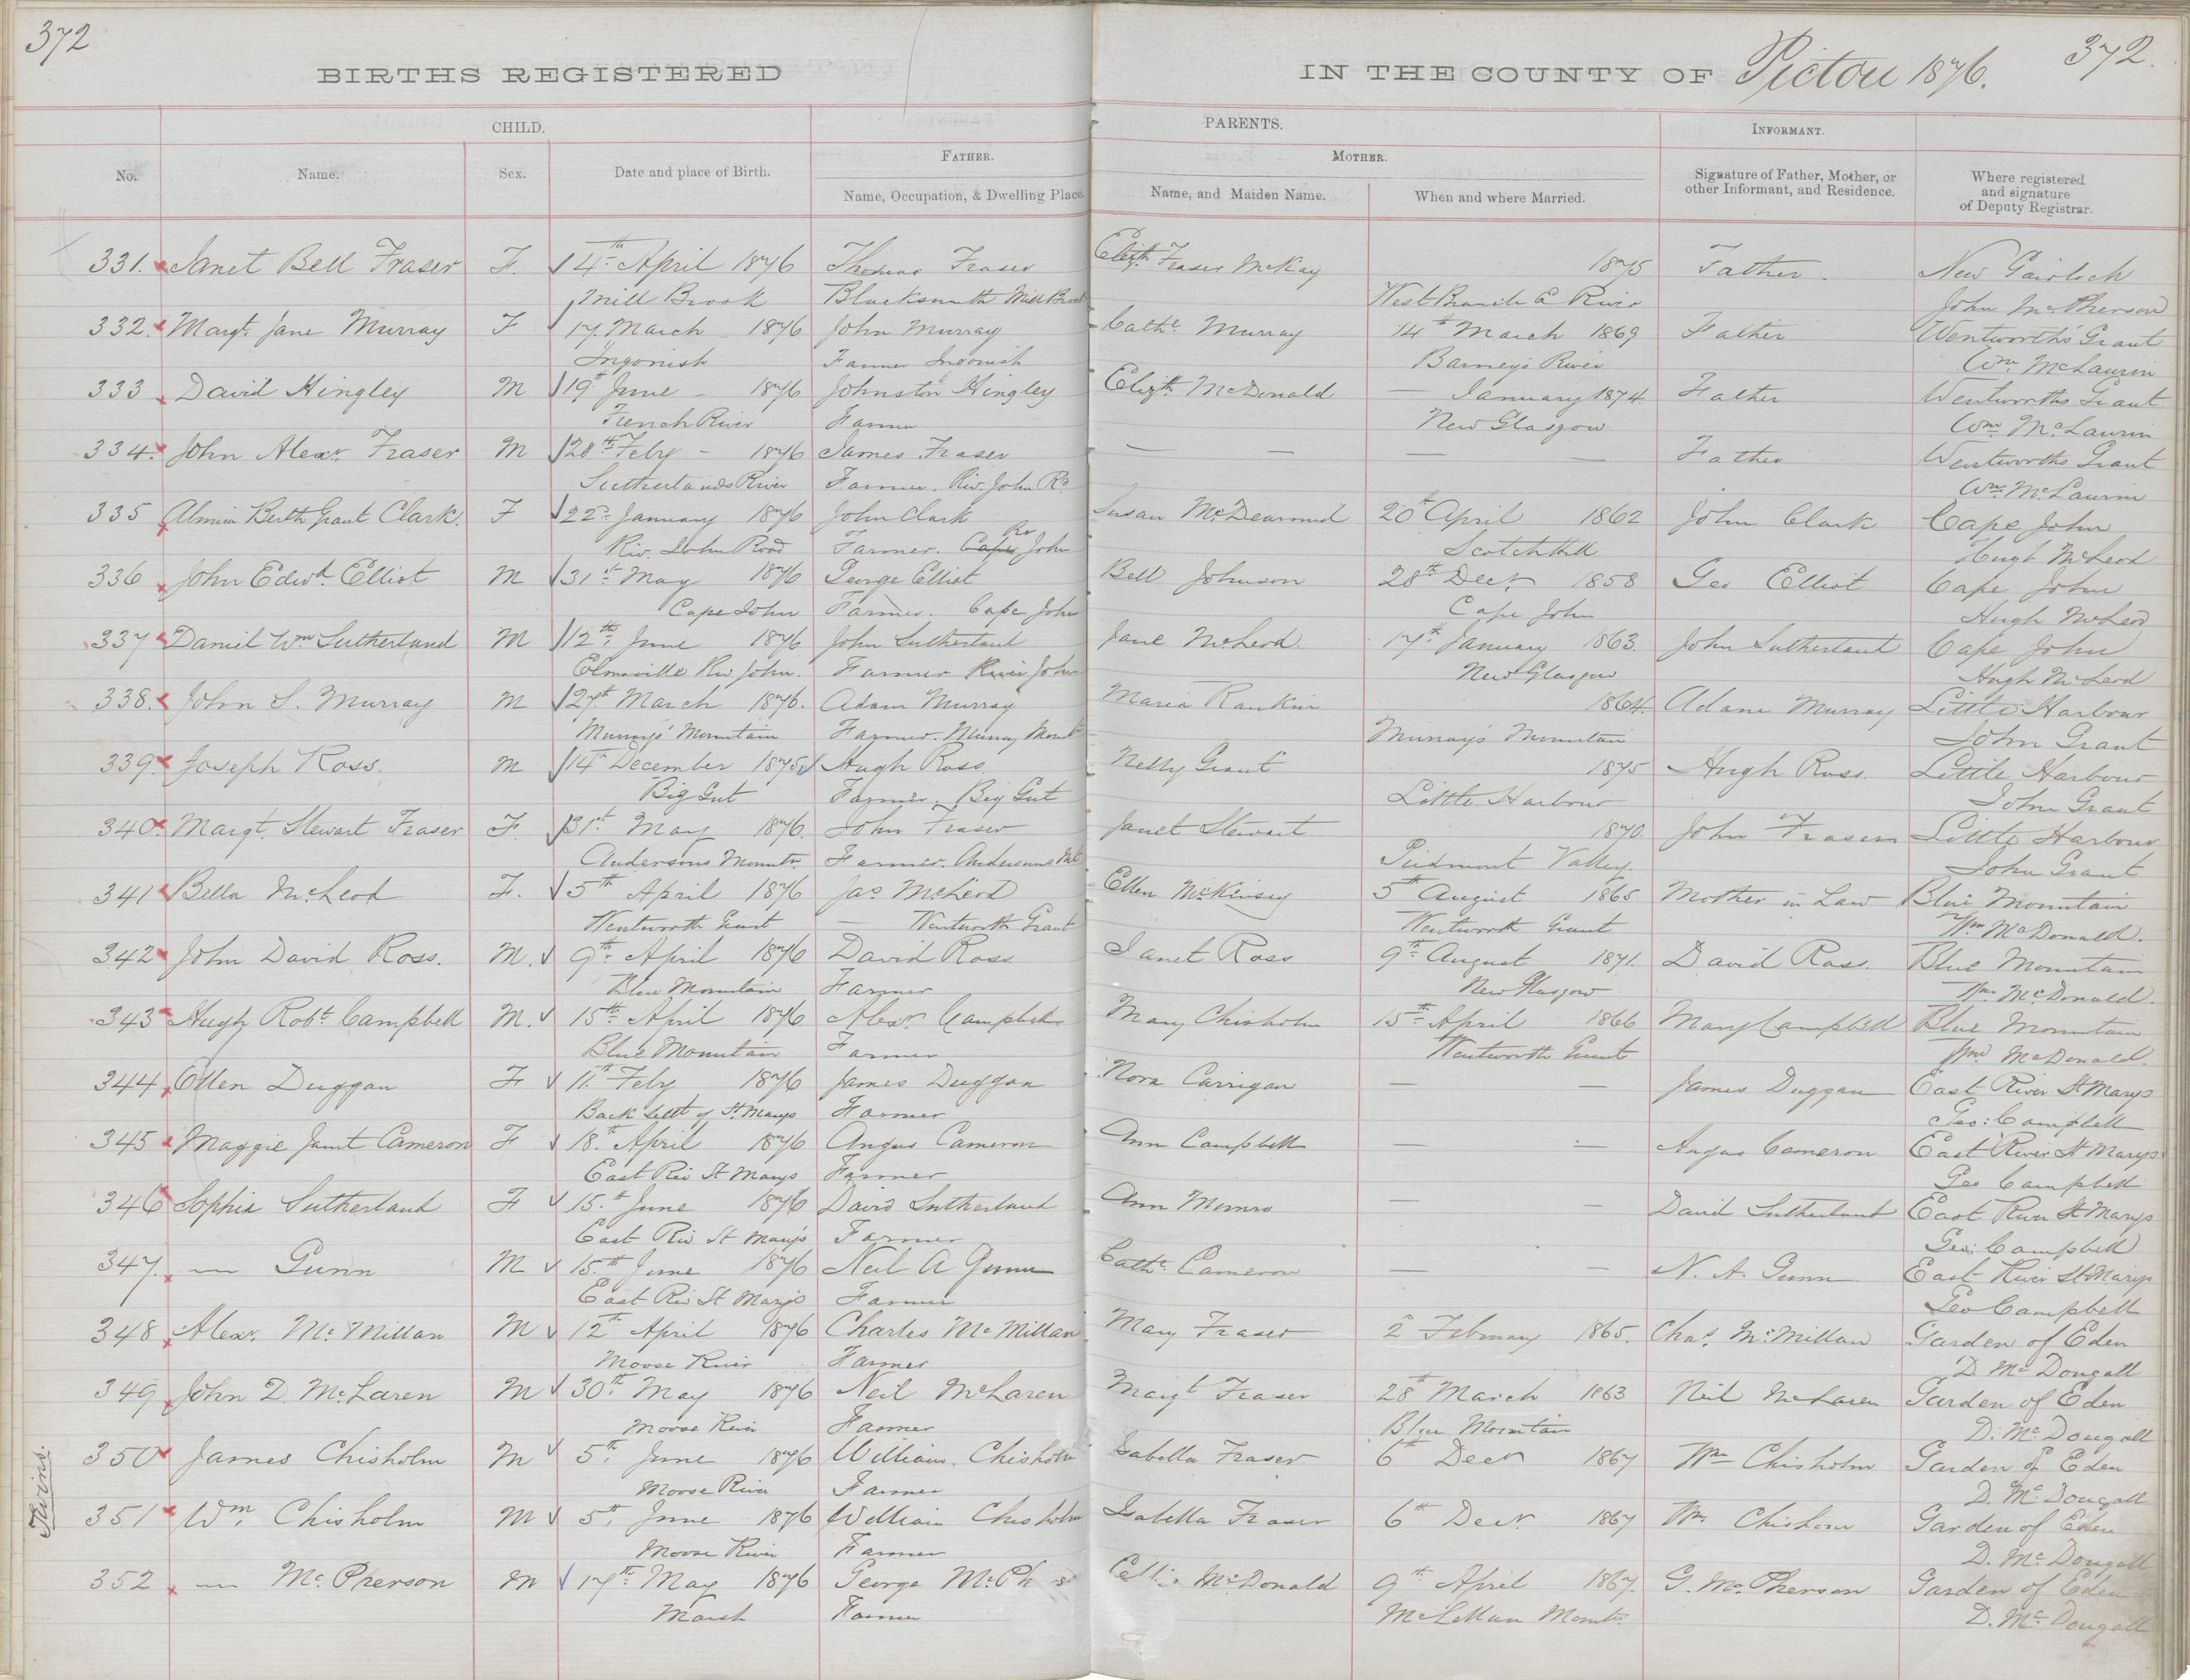 372
BIRTHS REGISTERED IN THE COUNTY OF Pictou 1876. 372.
CHILD. PARENTS. INFORMANT.
FATHER. MOTHER.
No. Name. Sex. Date and place of Birth. Name, Occupation, & Dwelling Place. Name, and Maiden Name. When and where Married. Signature of Father, Mother, or other Informant, and Residence. Where registered and signature of Deputy Registrar.
331. Janet Bell Fraser F. 4th April 1876 Thomas Fraser Elizth Fraser McKay 1875 Father. New Gairloch
Mill Brook Blacksmith Mill Brook West Branch E River John McPherson
332. Margt. Jane Murray F 17. March 1876 John Murray Cathe Murray 14th March 1869 Father Wentworth's Grant
Ingonish Farmer Ingonish Barneys River Wm McLaurin
333 David Hingley M 19th June - 1876 Johnston Hingley Elizth McDonald January 1874. Father Wentworths Grant
French River Farmer New Glasgow Wm McLaurin
334. John Alexr. Fraser M 28th Feby - 1876 James Fraser — — — — Father Wentworths Grant
Sutherlands River Farmer. Riv. John Rd. Wm McLaurin
335 Berth Grant Clark. F 22nd January 1876 John Clark Susan McDearmid 20th April 1862 John Clark Cape John
Riv. John Road Farmer. Cape Riv John Scotch Hill Hugh McLeod
336 John Edwd. Elliot M 31st May 1876 George Elliot Bell Johnson 28th Decr 1858 Geo Elliot Cape John
Cape John Farmer. Cape John Cape John Hugh McLeod
337 Daniel Wm Sutherland M 12th June 1876 John Sutherland Jane McLeod. 17th January 1863. John Sutherland Cape John
Elmsville Riv John. Farmer River John New Glasgow Hugh McLeod
338. John S. Murray M 27th March 1876. Adam Murray Maria Rankin 1864. Adam Murray Little Harbour
Murrays' Mountain Farmer. Murray Mount Murray's Mountain John Grant
339. Joseph Ross. M 14th December 1875 Hugh Ross Nelly Grant 1875 Hugh Ross. Little Harbour
Big Gut Farmer. Big Gut Little Harbour John Grant
340. Margt. Stewart Fraser F. 31st May 1876. John Fraser Janet Stewart 1870. John Fraser Little Harbour
Andersons Mountn Farmer. Andersons Mt Piedmont Valley. John Grant
341 Bella McLeod F. 5th April 1876 Jas McLeod Ellen McKinsey 5th August 1865 Mother in Law Blue Mountain
Wentworth Grant — Wentworth Grant Wentworth Grant Wm McDonald.
342 John David Ross. M. 9th April 1876 David Ross Janet Ross 9th August 1871. David Ross. Blue Mountain
Blue Mountain Farmer New Glasgow Wm McDonald.
343 Hugh Robt Campbell M. 15th April 1876 Alexr. Campbell Mary Chisholm 15th April 1866 Mary Campbell Blue Mountain
Blue Mountain Farmer Wentworth Grant Wm McDonald.
344 Ellen Duggan F 11th Feby 1876 James Duggan Nora Carrigan — — James Duggan East River St Marys
Back Sett of St. Marys Farmer Geo: Campbell
345 Maggie Janet Cameron F 18th April 1876 Angus Cameron Ann Campbell — — Angus Cameron East River St Marys
East Riv St Marys Farmer Geo Campbell
346 Sophia Sutherland F 15th June 1876 David Sutherland Ann Munro — — David Sutherland East River St Marys
East Riv St Mary's Farmer Geo: Campbell
347. — Gunn M 15th June 1876 Neil A Gunn Cathe Cameron — — N. A. Gunn East River St Marys
East Riv St Marys Farmer Geo Campbell
348 Alexr. McMillan M 12th April 1876 Charles McMillan Mary Fraser 2d February 1865. Chas McMillan Garden of Eden
Moose River Farmer D McDougall
349 John D. McLaren M 30th May 1876 Neil McLaren Margt Fraser 28th March 1863 Neil McLaren Garden of Eden
Moose River Farmer Blue Mountain D. McDougall
Twins.
350 James Chisholm M 5th June 1876 William Chisholm Isabella Fraser 6th Decr 1867 Wm Chisholm Garden of Eden
Moose River Farmer D. McDougall
351 Wm Chisholm M 5th June 1876 William Chisholm Isabella Fraser 6th Decr. 1867 Wm Chisholm Garden of Eden
Moose River Farmer D. McDougall
352 — McPherson M 17th May 1876 George McPh McDonald 9th April 1867. G. McPherson Garden of Eden
Marsh Farmer McLellan Mountn. D. McDougall